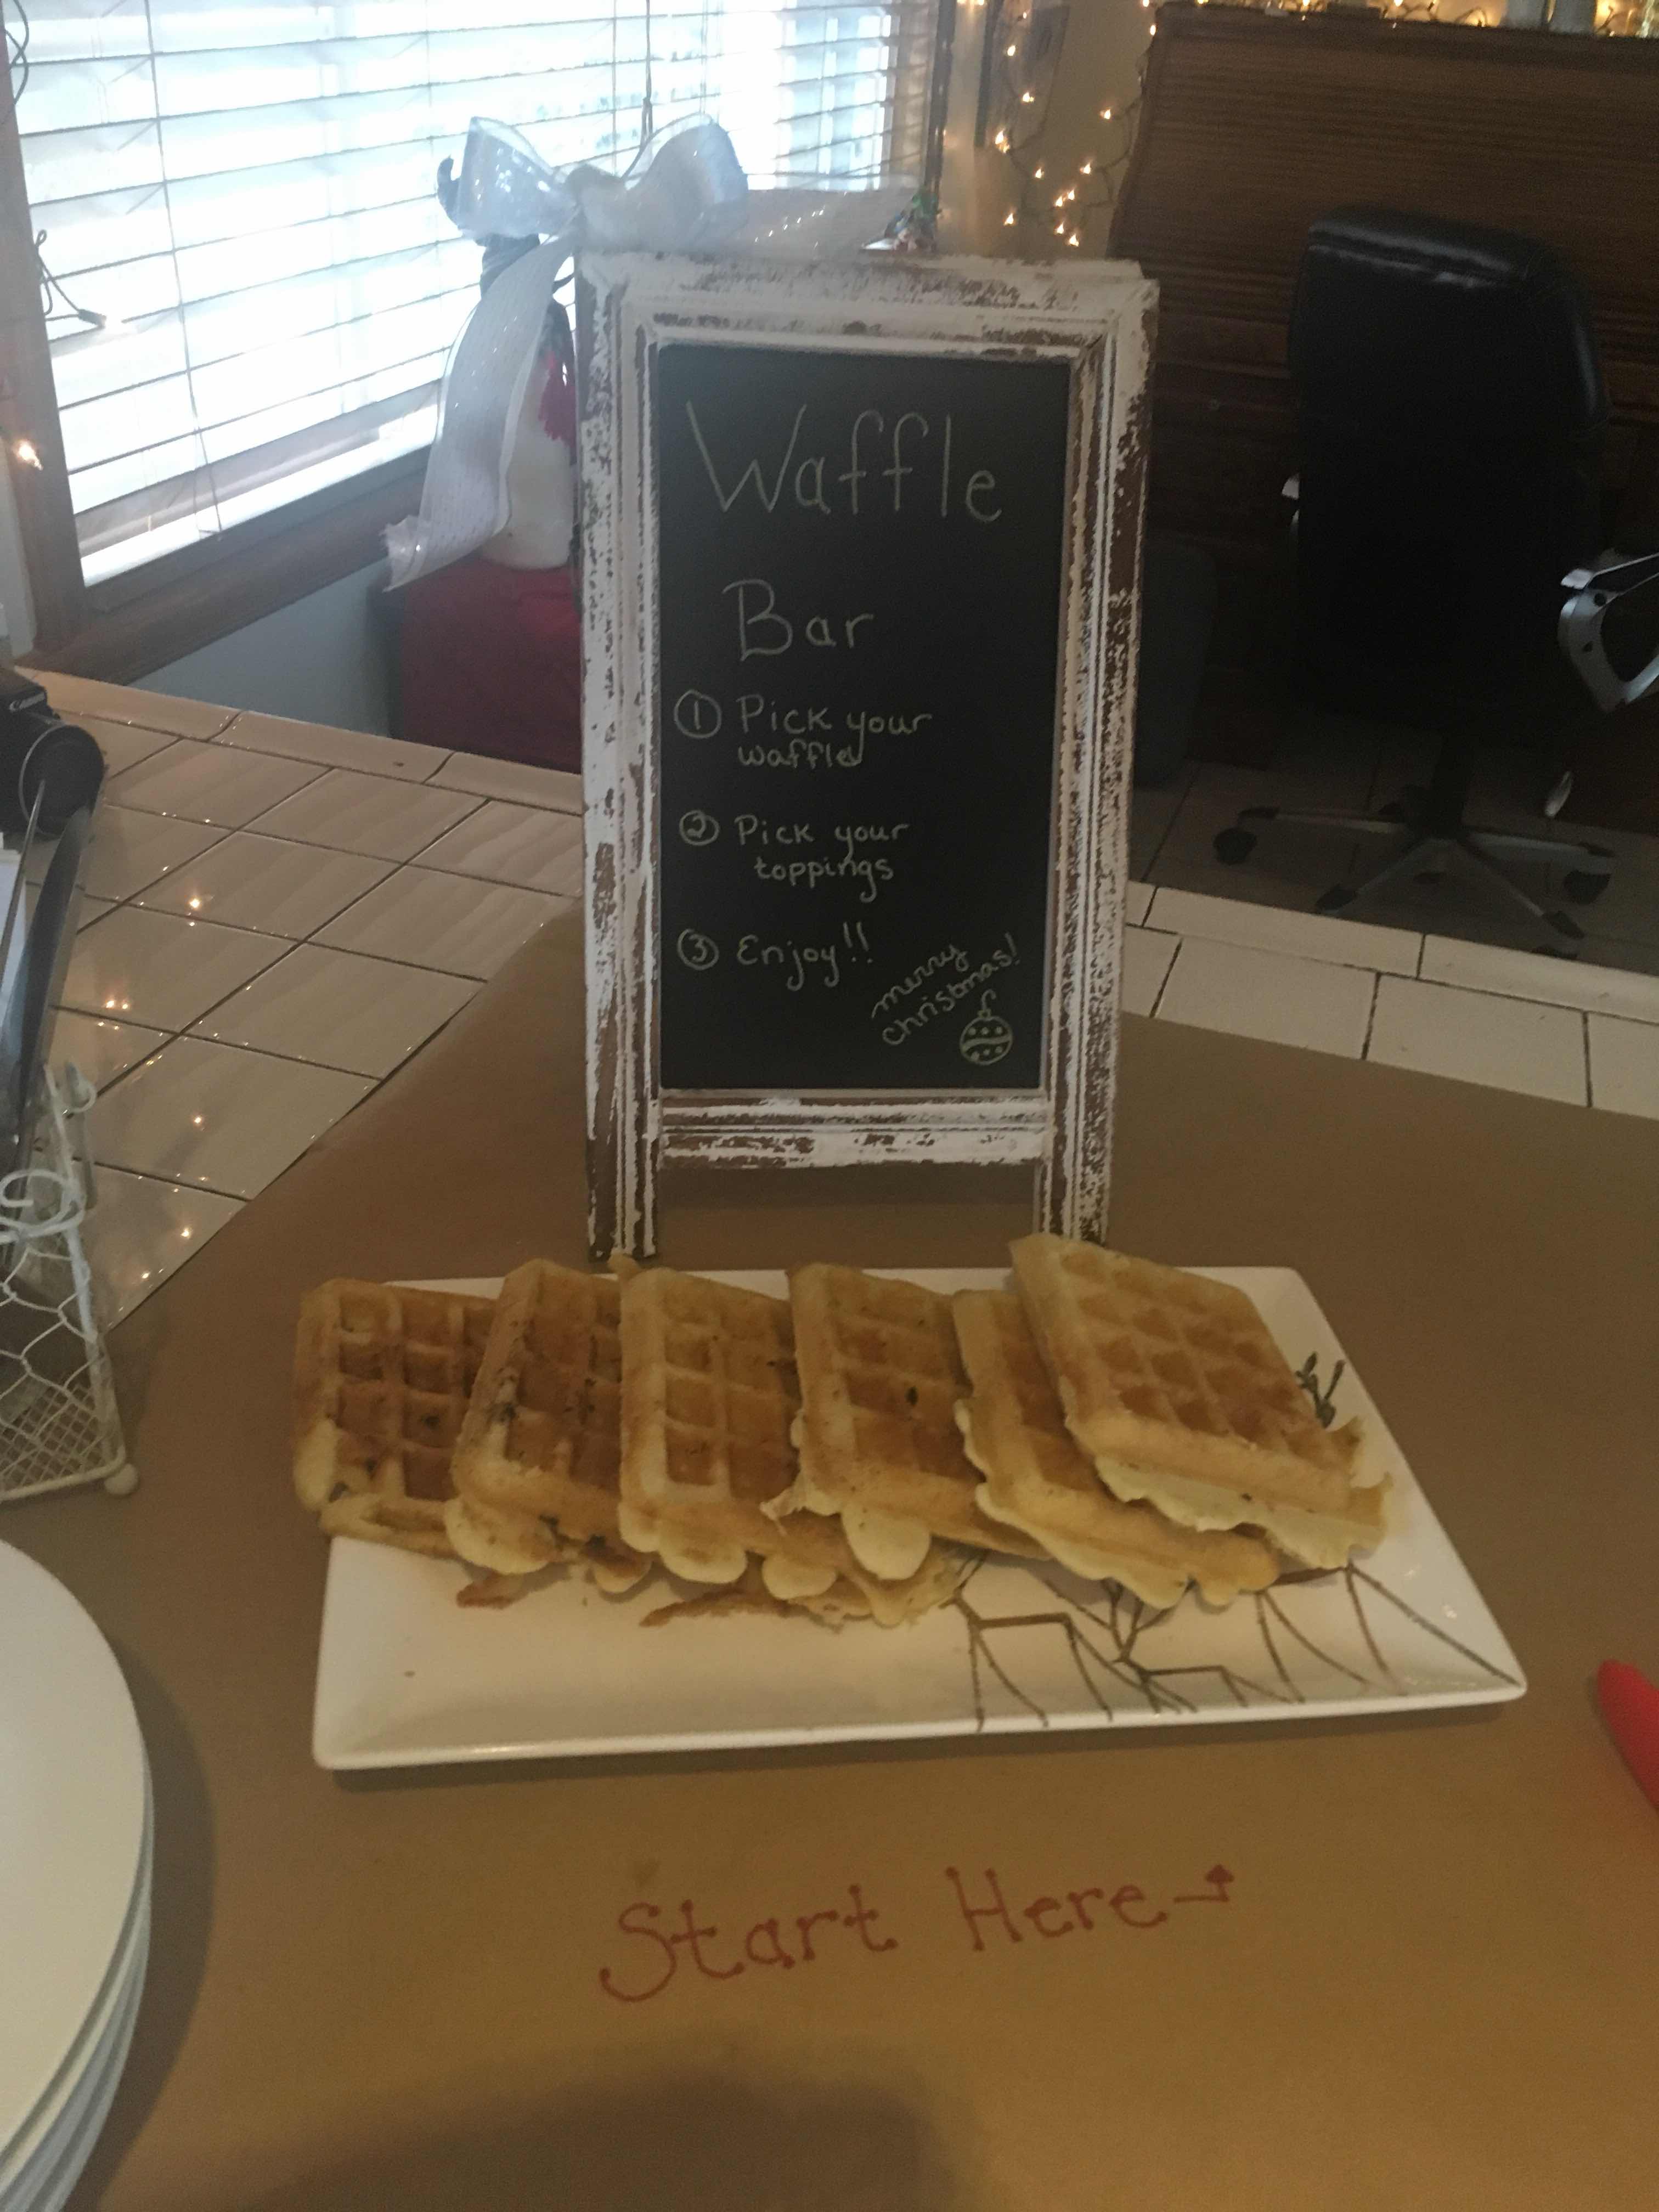 Waffle
Bar
① Pick your
waffle
② Pick your
toppings
③ Enjoy!!
merry
christmas!
Start Here→
Canon